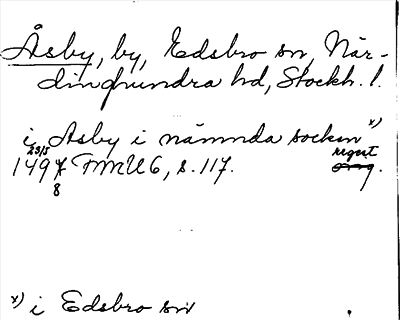 Åsby, by, Edsbro sn, När-
dinghundra hd, Stockh. l.
i Asby i nämnda socken x)
23/5 1498 FMU 6, s. 117. regest
x) i Edsbro sn